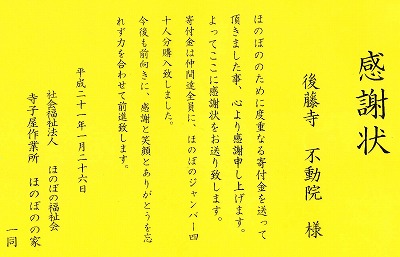 感謝状
後藤寺　不動院　様
ほのぼののために度重なる寄付金を送って
頂きました事、心より感謝申し上げます。
よってここに感謝状をお送り致します。
寄付金は仲間達全員に、ほのぼのジャンバー四
十人分購入致しました。
今後も前向きに、感謝と笑顔とありがとうを忘
れず力を合わせて前進致します。
平成二十一年一月二十六日
社会福祉法人　ほのぼの福祉会
寺子屋作業所　ほのぼのの家
一同